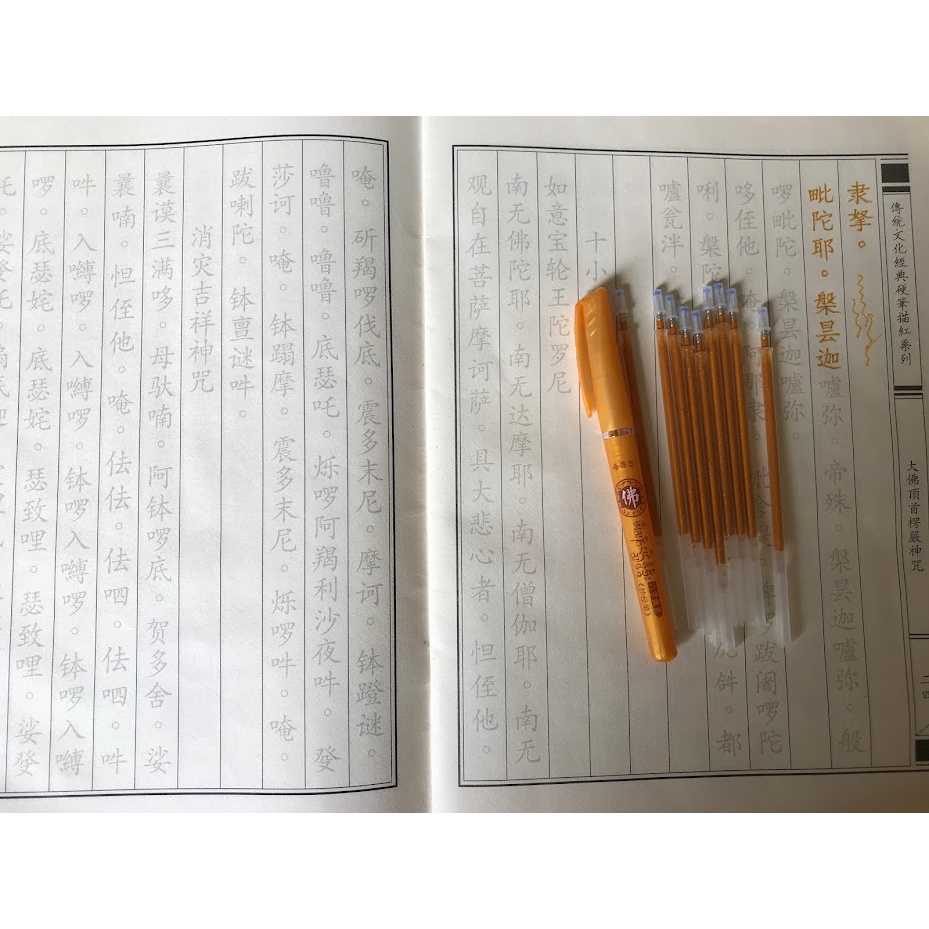 傳統文化經典硬筆描紅系列
大佛頂首楞嚴神咒
隶拏。
毗陀耶。槃昙迦嚧弥。帝殊。槃昙迦嚧弥。般
啰毗陀。槃昙迦嚧弥。 跋阇啰陀
哆侄他。 都
唎。槃陀
嚧瓮泮。
十小
如意宝轮王陀罗尼
南无佛陀耶。南无达摩耶。南无僧伽耶。南无
观自在菩萨摩诃萨。具大悲心者。怛侄他。
佛
唵。斫羯啰伐底。震多末尼。摩诃。钵蹬谜。
噜噜。噜噜。底瑟吒。烁啰阿羯利沙夜吽。癹
莎诃。唵。钵蹋摩。震多末尼。烁啰吽。唵。
跋喇陀。钵亶谜吽。
消灾吉祥神咒
曩谟三满哆。母驮喃。阿钵啰底。贺多舍。娑
曩喃。怛侄他。唵。佉佉。佉呬。佉呬。吽
吽。入嚩啰。入嚩啰。钵啰入嚩啰。钵啰入嚩
啰。底瑟姹。底瑟姹。瑟致哩。瑟致哩。娑癹